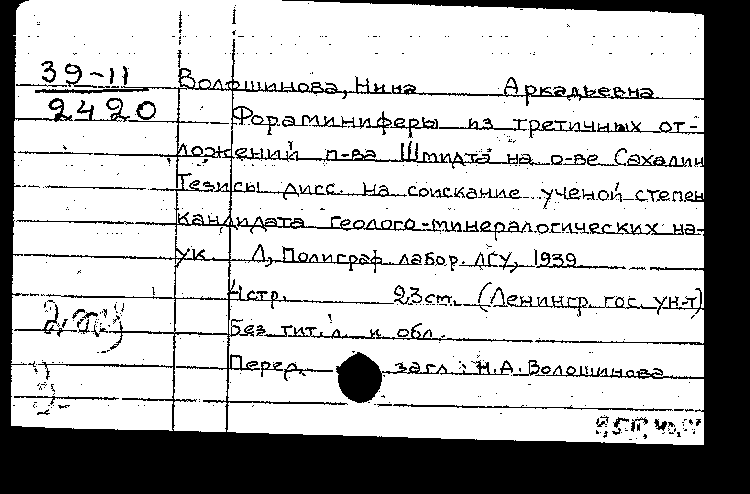 39-11
2420
Волошинова, Нина Аркадьевна
Фораминиферы из третичных от-
ложений п-ва Шмидта на о-ве Сахалин
Тезисы дисс. на соискание ученой степен
кандидата геолого-минералогических на-
ук. Л, Полиграф. лабор. ЛГУ, 1939
4стр. 23см. (Ленингр. гос. ун-т)
Без тит. л. и обл.
Перед загл: Н.А. Волошинова